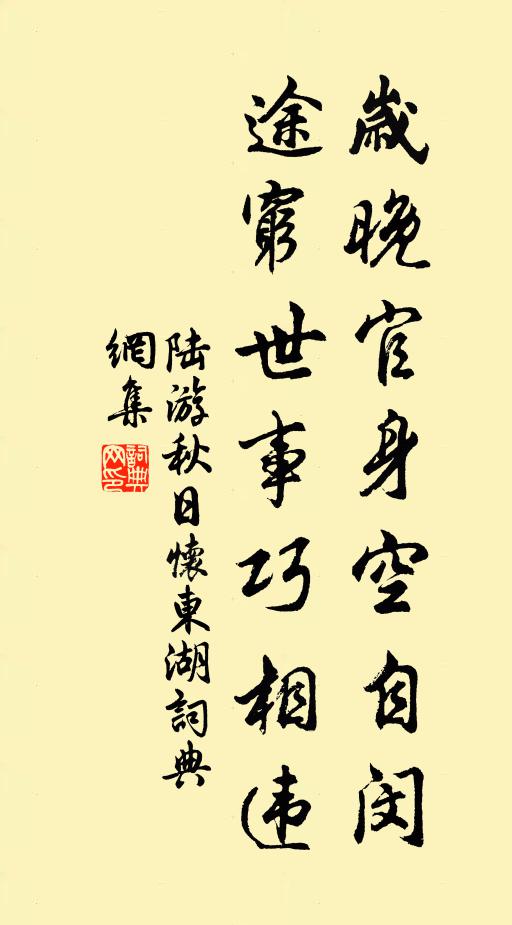 歲晚官身空自闵
途窮世事巧相违
陆游秋日懷東湖詞典
網集
詞典网印